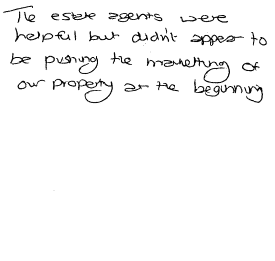 The estate agents were
helpful but didn't appear to
be pushing the marketting of
our property at the beginning